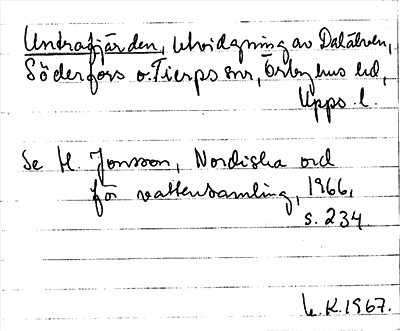 Untrafjärden, utvidgning av Dalälven,
Söderfors o. Tierps snr, Örbyhus hd,
Upps. l.
Se H. Jonsson, Nordiska ord
för vattensamling, 1966,
s. 234.
L.K. 1967.